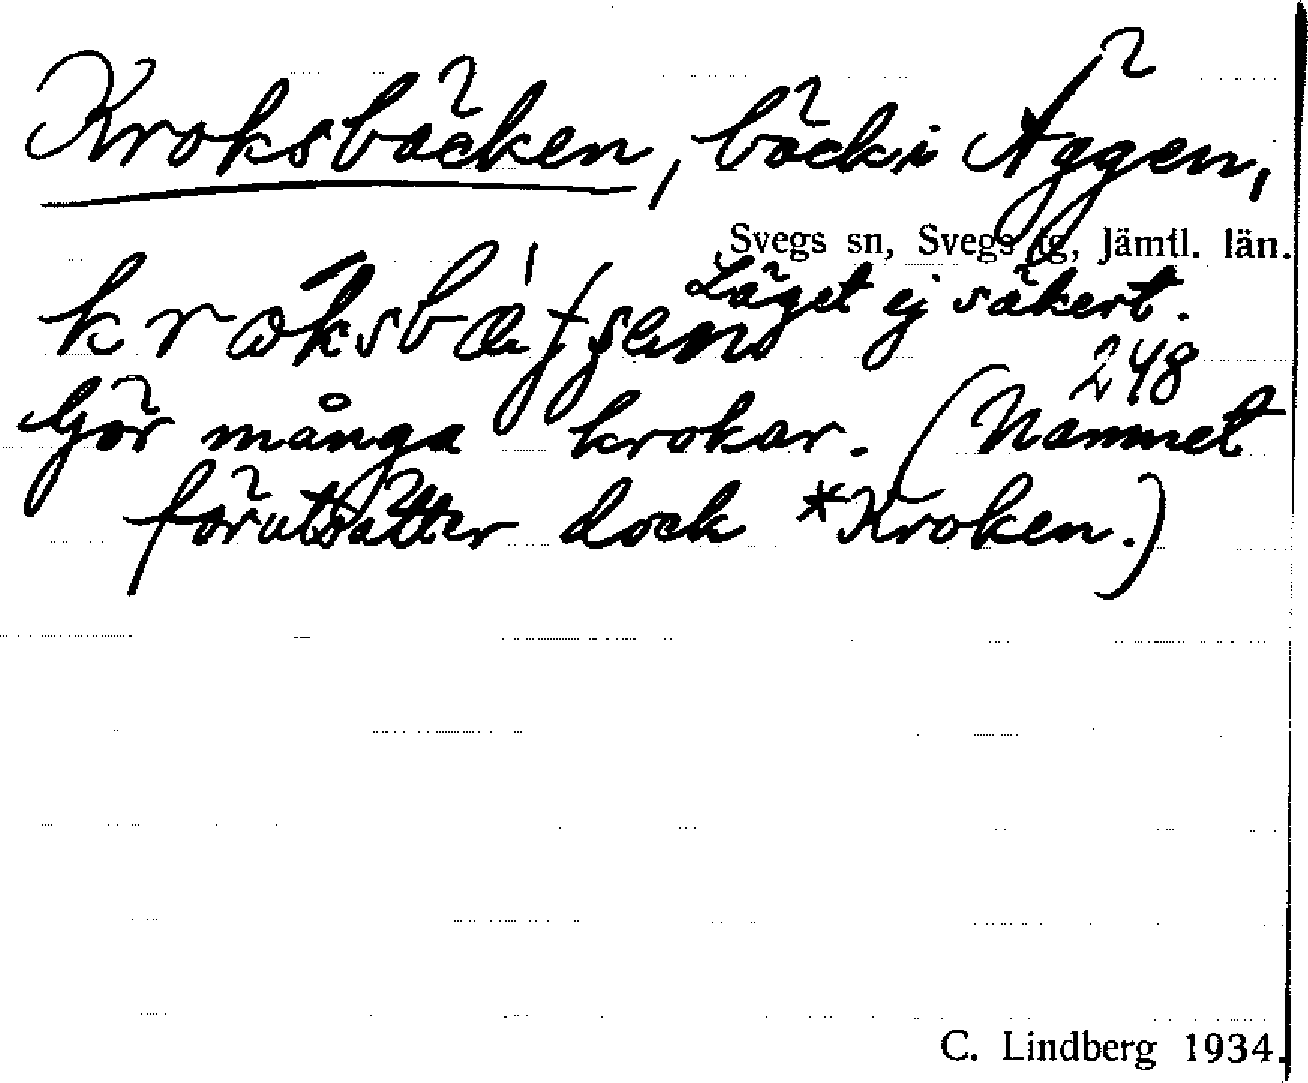 Kroksbäcken, bäck i Äggen,
Svegs sn, Svegs tg, Jämtl. län.
Läget ej säkert.
248
Gör många krokar. (Namnet
förutsätter dock *Kroken.)
C. Lindberg 1934.